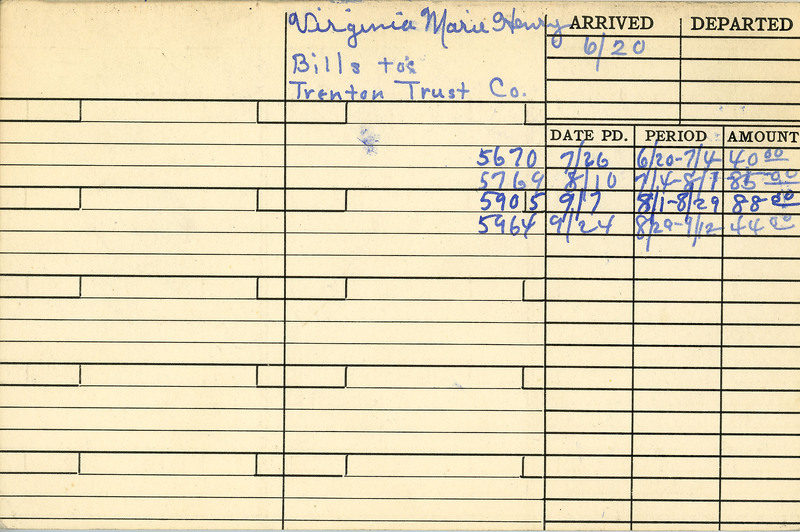 Virginia Marie Henry
ARRIVED DEPARTED
6/20
Bills to:
Trenton Trust Co.
DATE PD. PERIOD AMOUNT
5670 7/26 6/20-7/4 40 00
5769 8/10 7/4-8/1 85 00
5905 9/7 8/1-8/29 88 00
5964 9/24 8/29-9/12 44 00